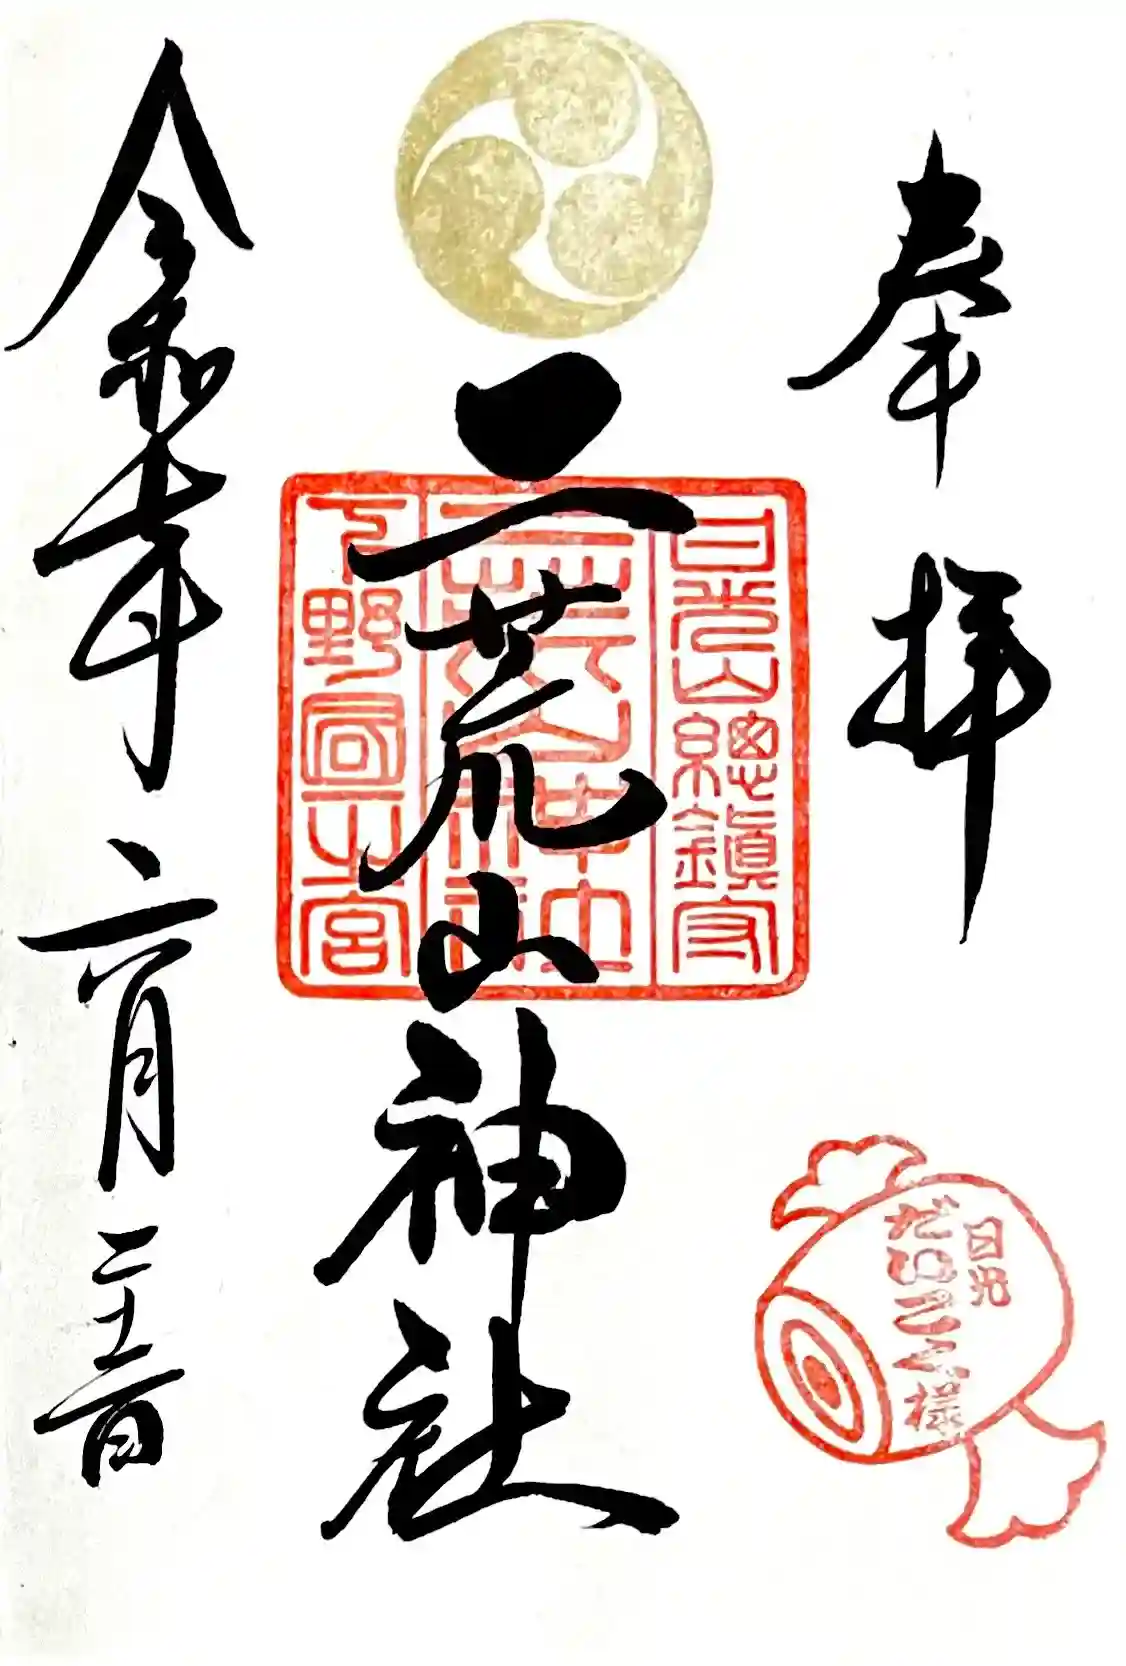 奉拝
日光山總鎮守
二荒山神社
下野國一之宮
二荒山神社
令和 年六月二十 日
日光
だいこく様